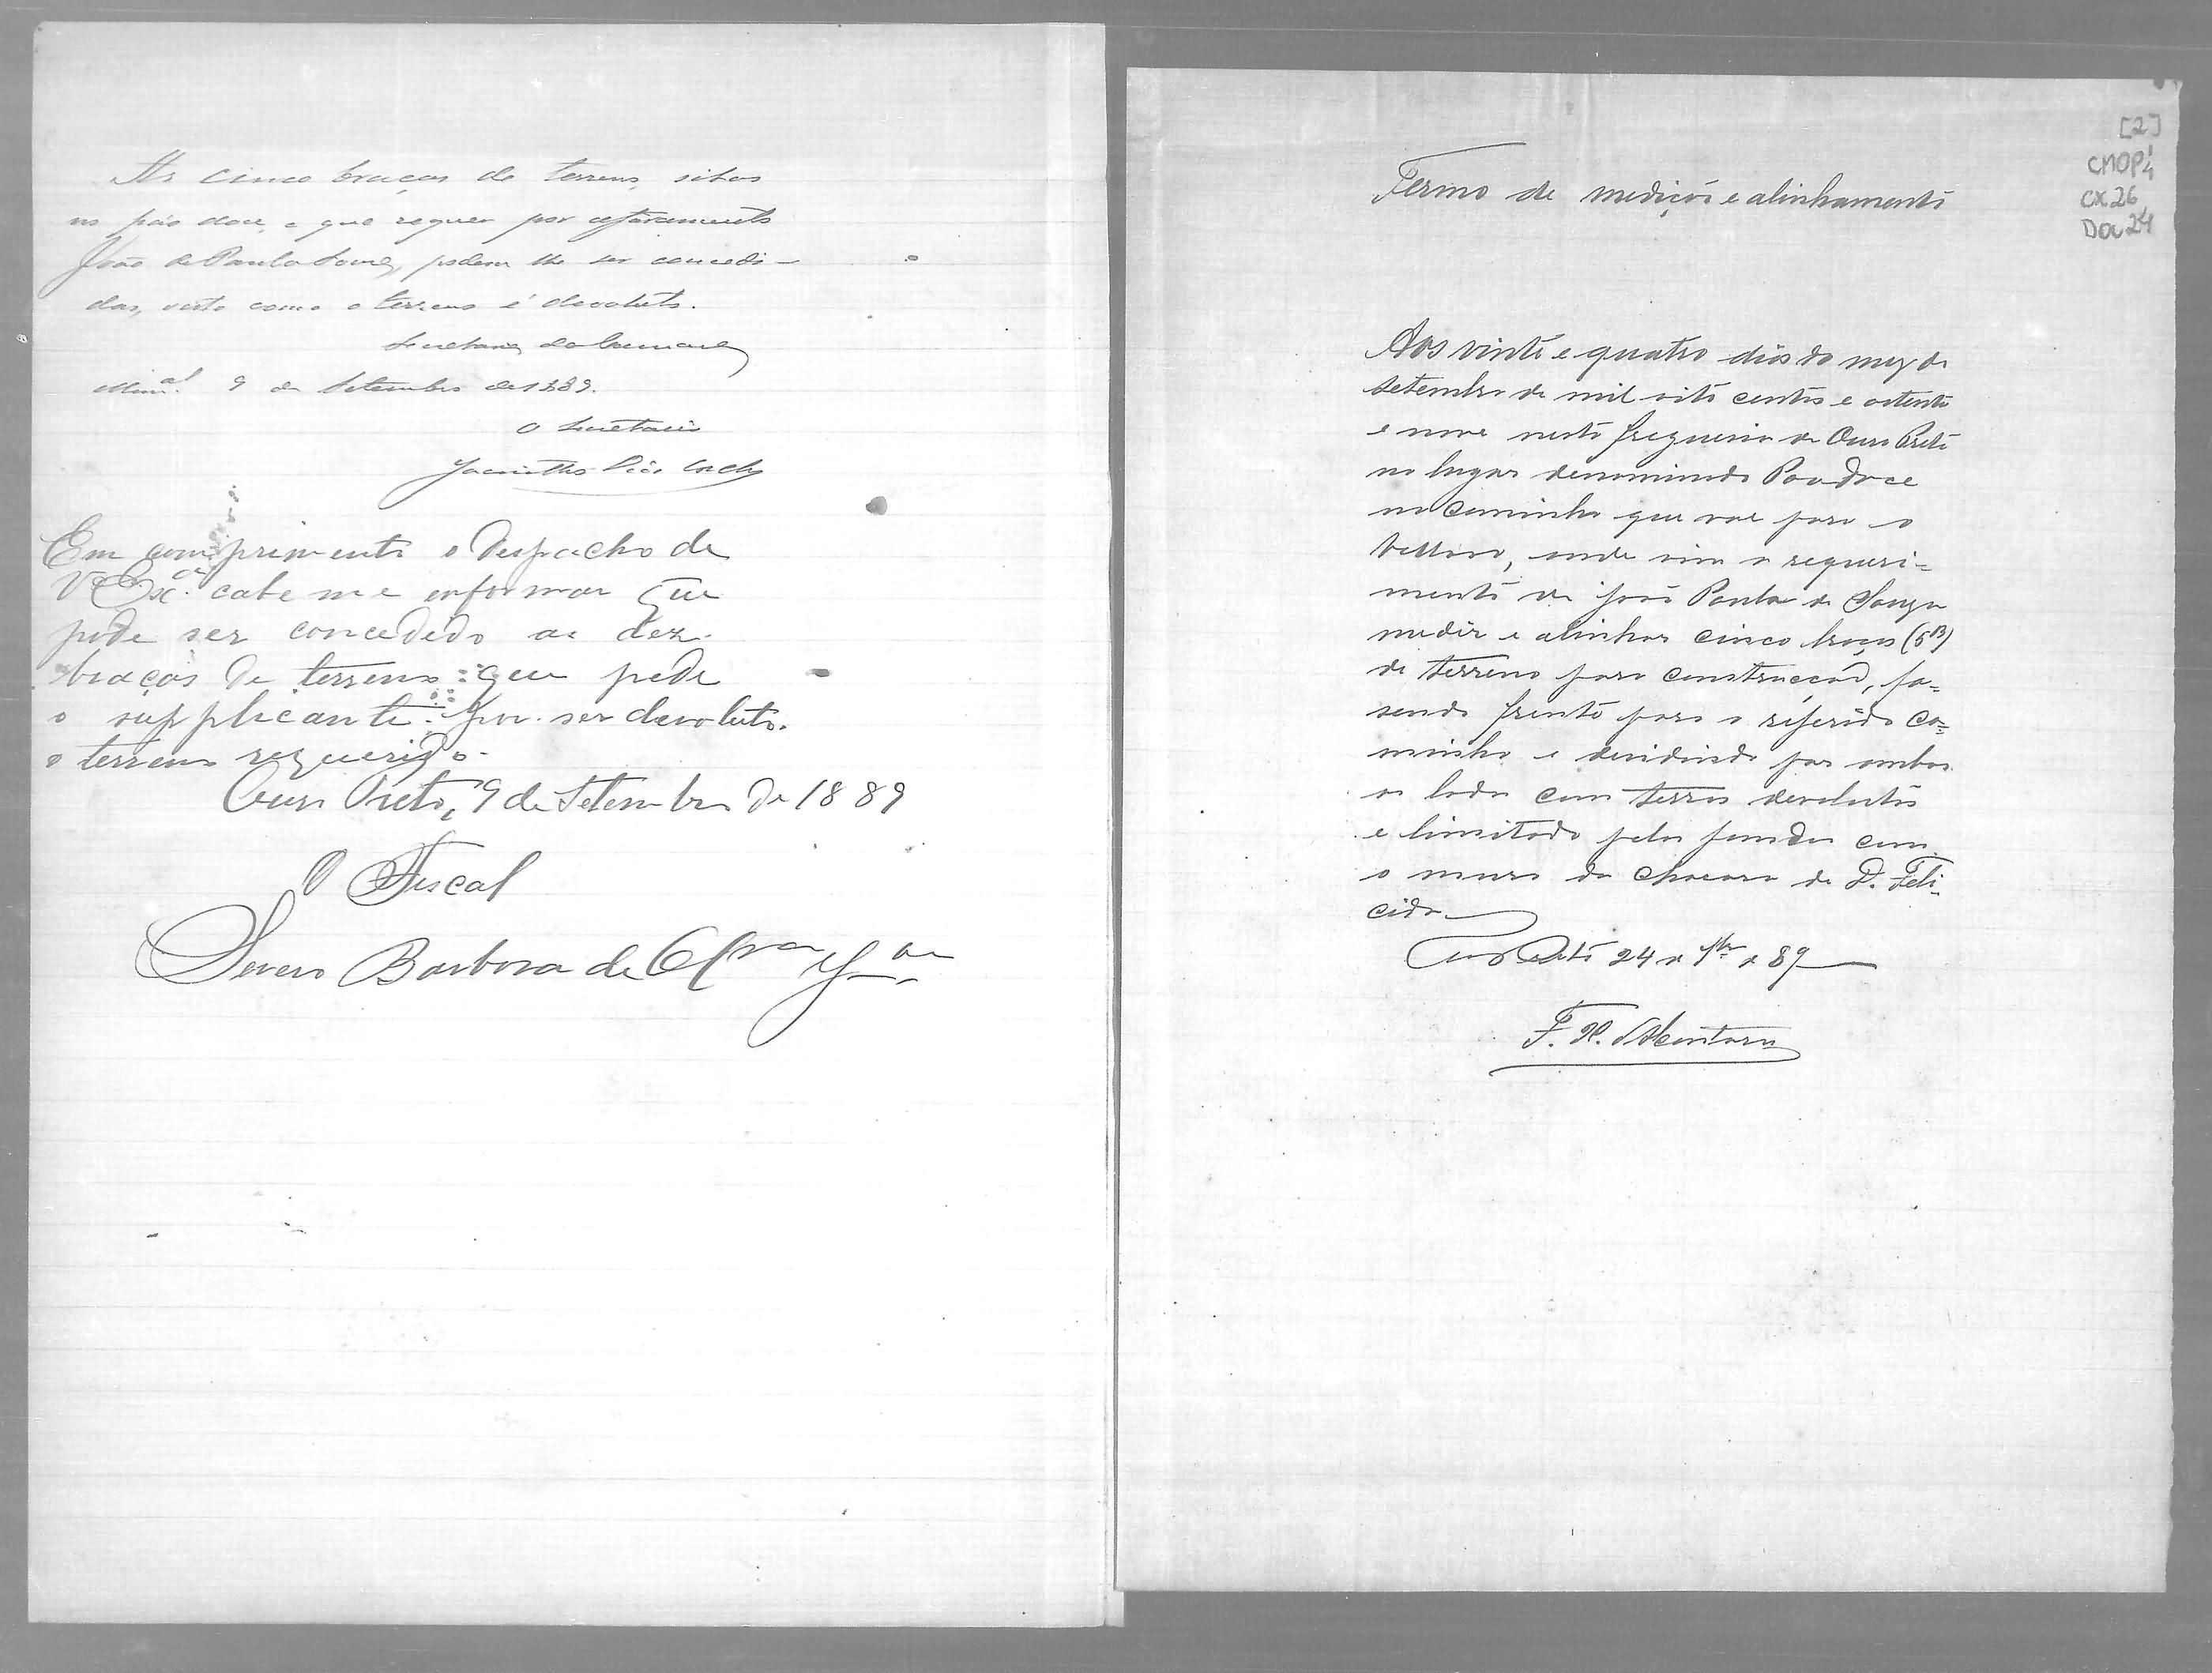 As cinco braças de terreno, sitas
no páo doce, e que requer por aforamento
João de Paula Souza, podem lhe ser concedi-
das, visto como o terreno é devoluto.
Secretaria da Camara
Mun.al 9 de Setembro de 1889.
O Secretario
Jacintho Dias
Em comprimento o despacho de
V Exc.a cabe me enformar que
pode ser concedido as dez
braças de terreno que pede
o supplicante por ser devoluto.
o terreno requerido.
Ouro Preto, 9 de Setembro de 1889
O Fiscal
Severo Barbosa de
[2]
CMOP
CX 26
Doc 24
Termo de medição e alinhamento
Aos vinte e quatro dias do mez de
setembro de mil oito centos e oitenta
e nove nesta freguesia de Ouro Preto
no lugar denominado Pao doce
no caminho que vae para o
onde vim a requeri-
mento de João Paula de Souza
medir e alinhar cinco braças (5B)
de terreno para construcção, fa-
sendo frente para o referido ca-
minho e dividindo por ambos
os lados com terras devolutas
e limitado pelos fundos com
o muro da chacara de D. Feli-
cida
Ouro Preto 24 de 7br de 89
F. Alcantara